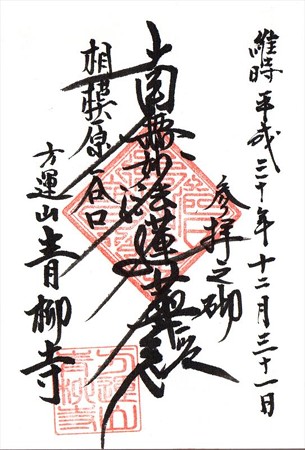 維時平成三十年十二月三十一日
参拝之砌
南無妙法蓮華経
相模原谷口
方運山青柳寺